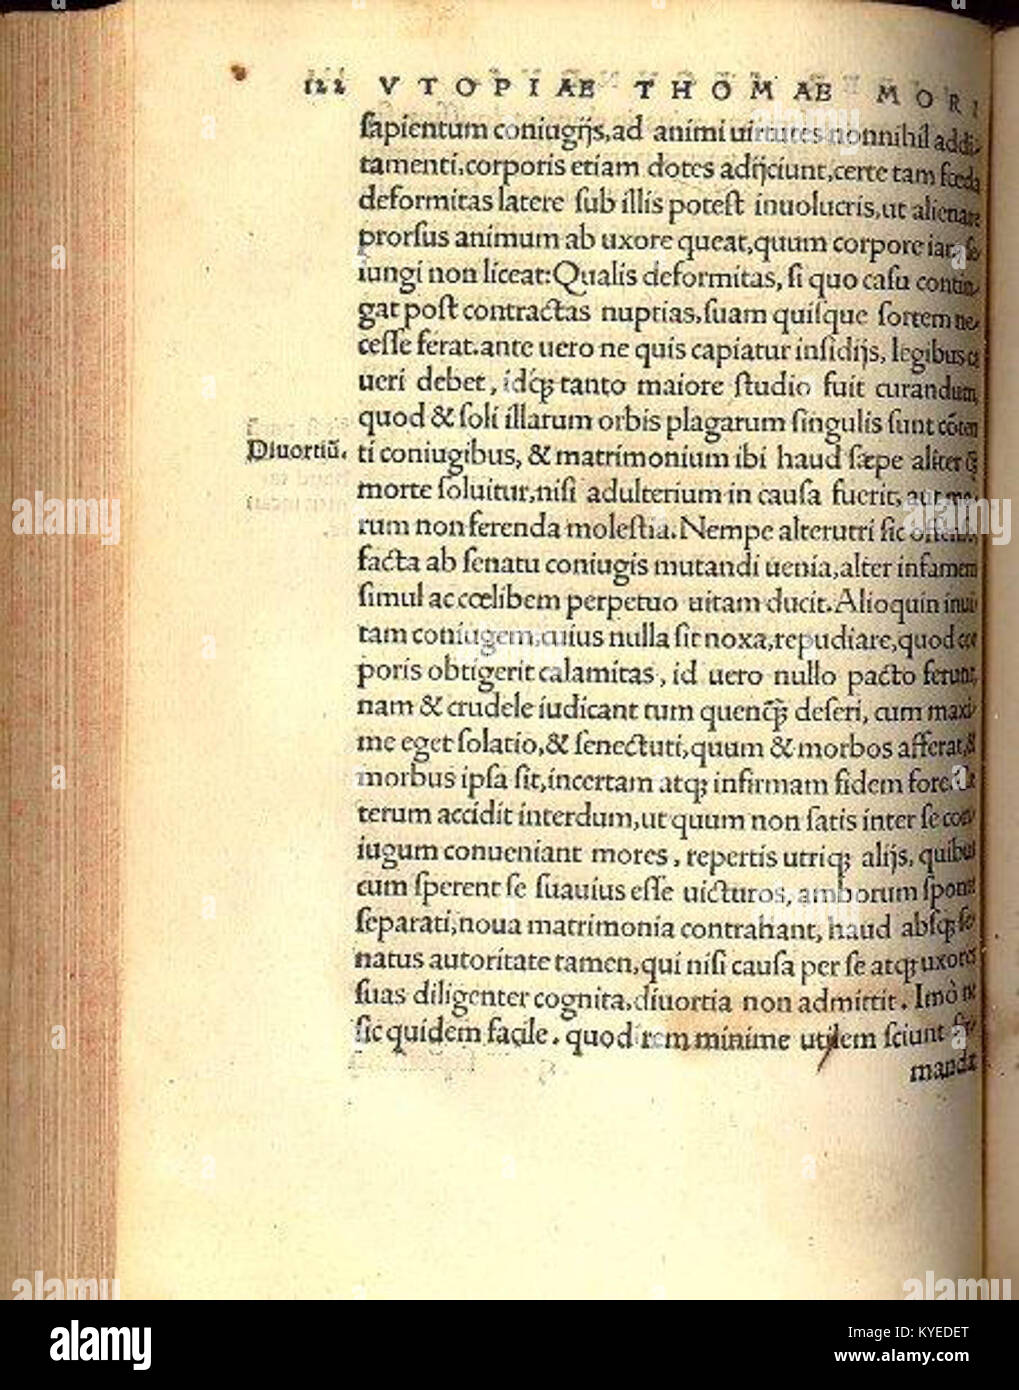 122 VTOPIAE THOMAE MORI
ſapientum coniugijs, ad animi uirtutes nonnihil addi-
tamenti, corporis etiam dotes adijciunt, certe tam fœda
deformitas latere ſub illis poteſt inuolucris, ut alienare
prorſus animum ab uxore queat, quum corpore iam ſe-
iungi non liceat: Qualis deformitas, ſi quo caſu contin-
gat poſt contractas nuptias, ſuam quiſque ſortem ne-
ceſſe ferat. ante uero ne quis capiatur inſidijs, legibus ca
ueri debet, idq; tanto maiore ſtudio fuit curandum,
quod & ſoli illarum orbis plagarum ſingulis ſunt cõten
Diuortiũ.
ti coniugibus, & matrimonium ibi haud ſæpe aliter q̃
morte ſoluitur, niſi adulterium in cauſa fuerit, aut mo-
rum non ferenda moleſtia. Nempe alterutri ſic
facta ab ſenatu coniugis mutandi uenia, alter infamem
ſimul ac cœlibem perpetuo uitam ducit. Alioquin inui-
tam coniugem, cuius nulla ſit noxa, repudiare, quod cor
poris obtigerit calamitas, id uero nullo pacto ferunt,
nam & crudele iudicant tum quenq̃; deſeri, cum maxi-
me eget ſolatio, & ſenectuti, quum & morbos afferat, &
morbus ipſa ſit, incertam atq; infirmam fidem fore. Cæ
terum accidit interdum, ut quum non ſatis inter ſe con-
iugum conueniant mores, repertis utriq; alijs, quibus
cum ſperent ſe ſuauius eſſe uicturos, amborum ſponte
ſeparati, noua matrimonia contrahant, haud abſq; ſe-
natus autoritate tamen, qui niſi cauſa per ſe atq; uxores
ſuas diligenter cognita, diuortia non admittit. Imò ne
ſic quidem facile. quod rem minime utilem ſciunt fir-
mandæ
alamy
Image ID: KYEDET
www.alamy.com